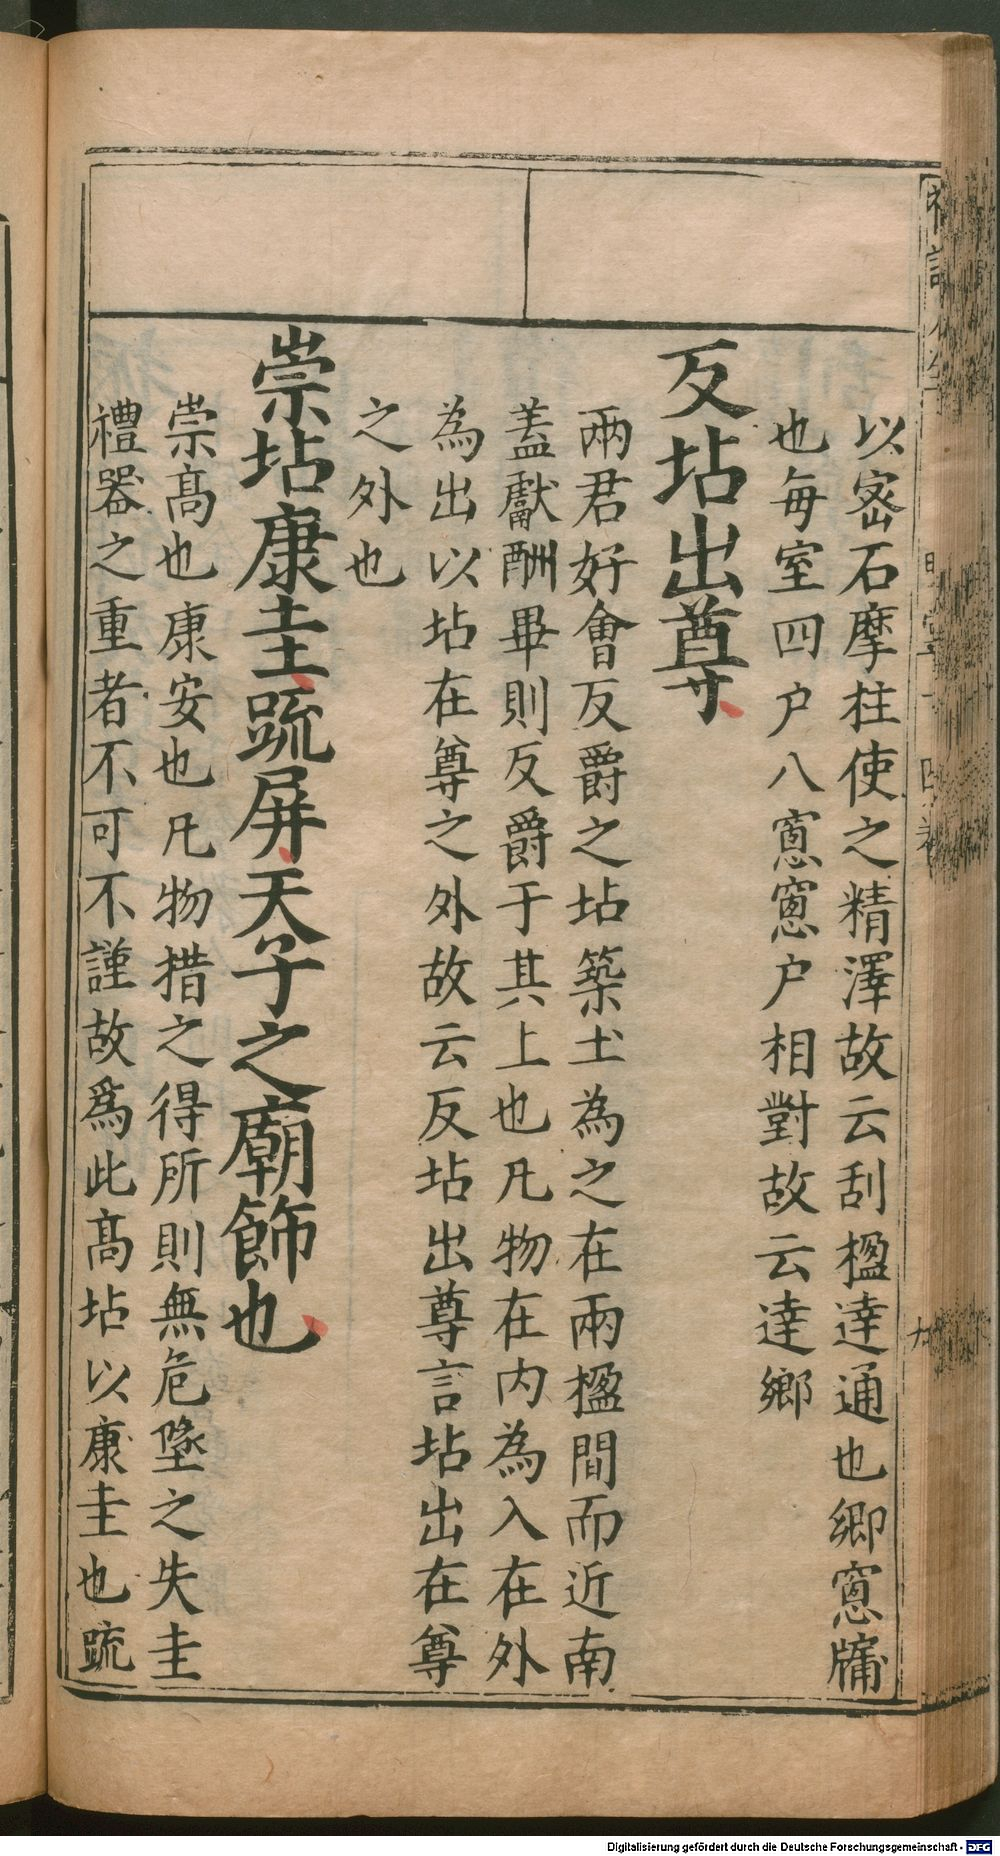 以宻石摩柱使之精澤故云刮楹達通也鄉窻牖
也毎室四户八窻窻户相對故云達鄉
反坫出尊
兩君好會反爵之坫築土為之在兩楹間而近南
盖獻酬畢則反爵于其上也凡物在内為入在外
為出以坫在尊之外故云反坫出尊言坫出在尊
之外也
崇坫康圭䟽屏天子之廟飾也
崇髙也康安也凡物措之得所則無危墜之失圭
禮器之重者不可不謹故爲此髙坫以康圭也䟽
Digitalisierung gefördert durch die Deutsche Forschungsgemeinschaft - DFG